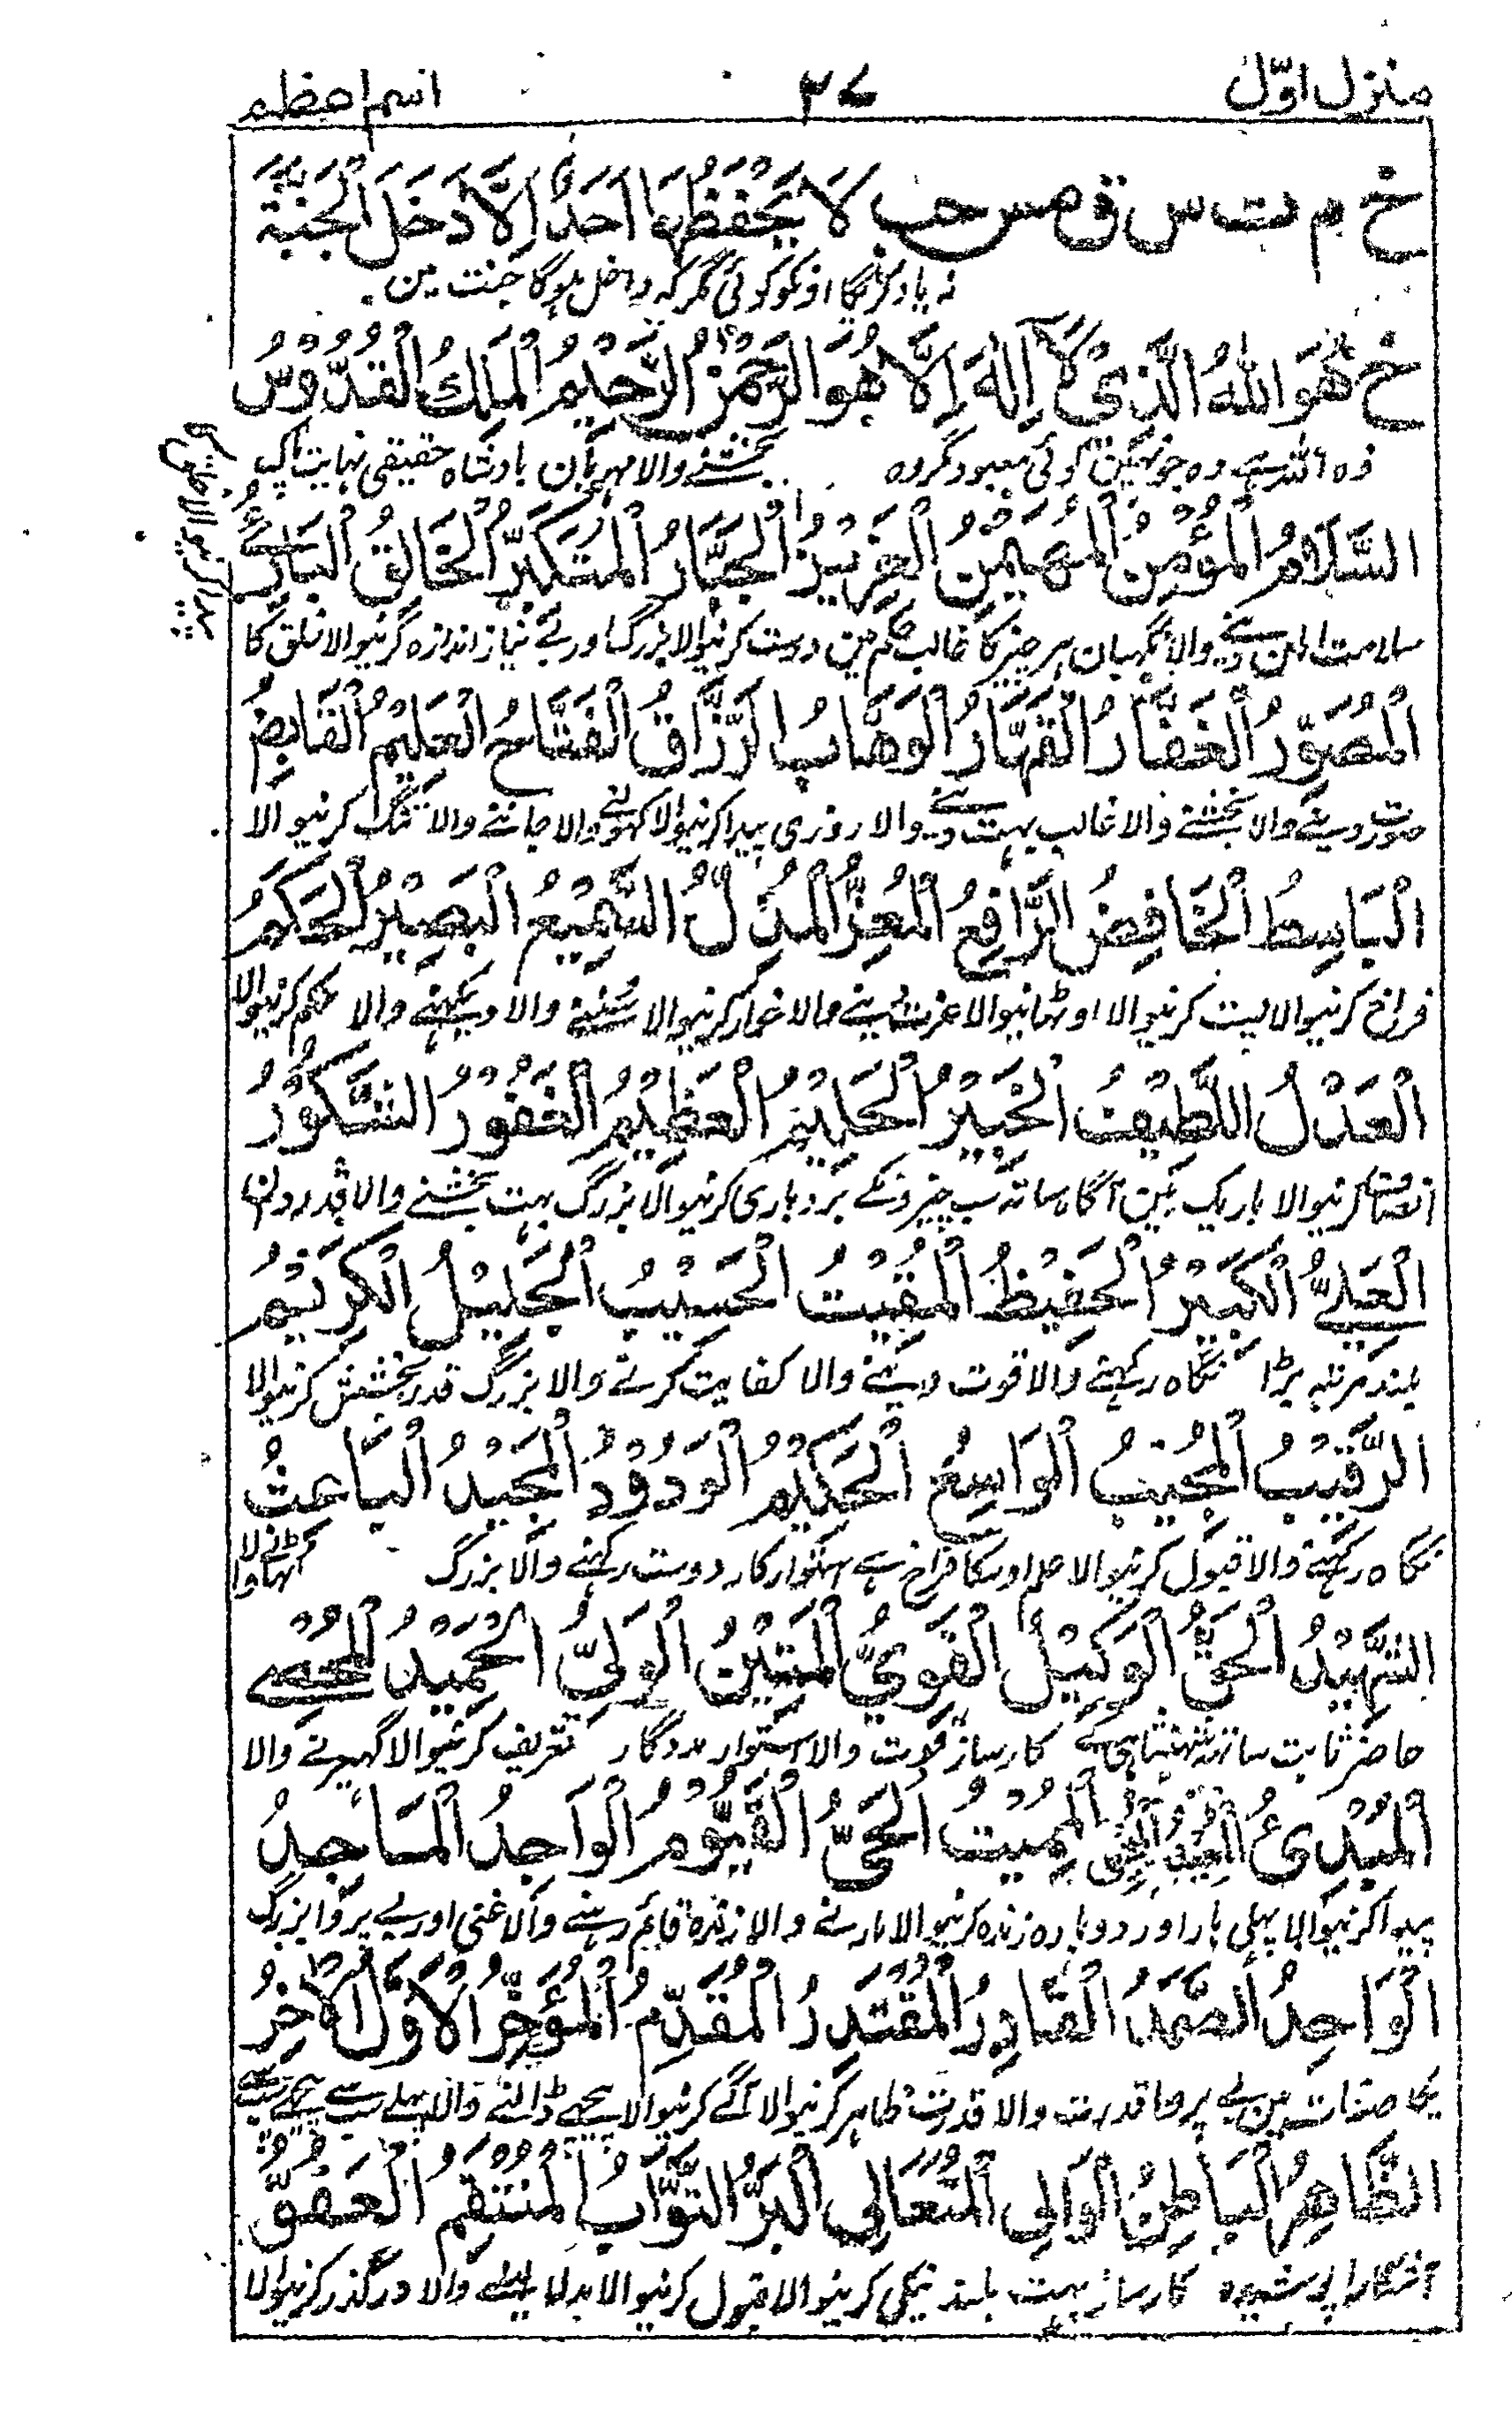 منزل اوّل ٣٧ اسم اعظم
خ م ت س ق مس حب لَا يَحْفَظُهَا اَحَدٌ اِلَّا دَخَلَ الْجَنَّةَ
نہ یاد کریگا اونکو کوئی مگر کہ داخل ہوگا جنت مین
خ هُوَ اللّٰهُ الَّذِيْ لَا اِلٰهَ اِلَّا هُوَ الرَّحْمٰنُ الرَّحِيْمُ الْمَلِكُ الْقُدُّوْسُ
وہ اللہ ہے وہ جو نہین کوئی معبود مگر وہ بخشنے والا مہربان بادشاہ حقیقی نہایت پاک
السَّلَامُ الْمُؤْمِنُ الْمُهَيْمِنُ الْعَزِيْزُ الْجَبَّارُ الْمُتَكَبِّرُ الْخَالِقُ الْبَارِئُ
سلامت امن دینے والا نگہبان ہر چیز کا غالب حکم مین درست کرنیوالا بزرگ اور بے نیاز اندازہ کرنیوالا خلق کا
الْمُصَوِّرُ الْغَفَّارُ الْقَهَّارُ الْوَهَّابُ الرَّزَّاقُ الْفَتَّاحُ الْعَلِيْمُ الْقَابِضُ
صورت دینے والا بخشنے والا غالب بہت دینے والا روزی پیدا کرنیوالا کہولنے والا جاننے والا تنگ کرنیوالا
الْبَاسِطُ الْخَافِضُ الرَّافِعُ الْمُعِزُّ الْمُذِلُّ السَّمِيْعُ الْبَصِيْرُ الْحَكَمُ
فراخ کرنیوالا پست کرنیوالا اوٹھانیوالا عزت دینے والا خوار کرنیوالا سننے والا دیکھنے والا حکم کرنیوالا
الْعَدْلُ اللَّطِيْفُ الْخَبِيْرُ الْحَلِيْمُ الْعَظِيْمُ الْغَفُوْرُ الشَّكُوْرُ
انصاف کرنیوالا باریک بین آگاہ ساتہ سب چیزونکے بردباری کرنیوالا بزرگ بہت بخشنے والا قدردان
الْعَلِيُّ الْكَبِيْرُ الْحَفِيْظُ الْمُقِيْتُ الْحَسِيْبُ الْجَلِيْلُ الْكَرِيْمُ
بلند مرتبہ بڑا نگاہ رکہنے والا قوت دینے والا کفایت کرنے والا بزرگ قدر بخشش کرنیوالا
الرَّقِيْبُ الْمُجِيْبُ الْوَاسِعُ الْحَكِيْمُ الْوَدُوْدُ الْمَجِيْدُ الْبَاعِثُ
نگاہ رکہنے والا قبول کرنیوالا علم اوسکا فراخ ہے استوار کار دوست رکہنے والا بزرگ
الشَّهِيْدُ الْحَقُّ الْوَكِيْلُ الْقَوِيُّ الْمَتِيْنُ الْوَلِيُّ الْحَمِيْدُ الْمُحْصِيْ
حاضر ثابت ساتہ شہنشاہی کے کارساز قوت والا استوار مددگار تعریف کرنیوالا گہیرنے والا
الْمُبْدِئُ الْمُعِيْدُ الْمُحْيِيْ الْمُمِيْتُ الْحَيُّ الْقَيُّوْمُ الْوَاجِدُ الْمَاجِدُ
پیدا کرنیوالا پہلی بار اور دوبارہ زندہ کرنیوالا مارنے والا زندہ قایم رہنے والا غنی اور بے پروا بزرگ
الْوَاحِدُ الصَّمَدُ الْقَادِرُ الْمُقْتَدِرُ الْمُقَدِّمُ الْمُؤَخِّرُ الْاَوَّلُ الْاٰخِرُ
صفات مین بے پروا قدرت والا قدرت ظاہر کرنیوالا آگے کرنیوالا پیچھے ڈالنے والا پہلے سب سے پیچھے
الظَّاهِرُ الْبَاطِنُ الْوَالِي الْمُتَعَالِي الْبَرُّ التَّوَّابُ الْمُنْتَقِمُ الْعَفُوُّ
آشکارا پوشیدہ کارساز بہت بلند نیکی کرنیوالا قبول کرنیوالا بدلا لینے والا درگذر کرنیوالا